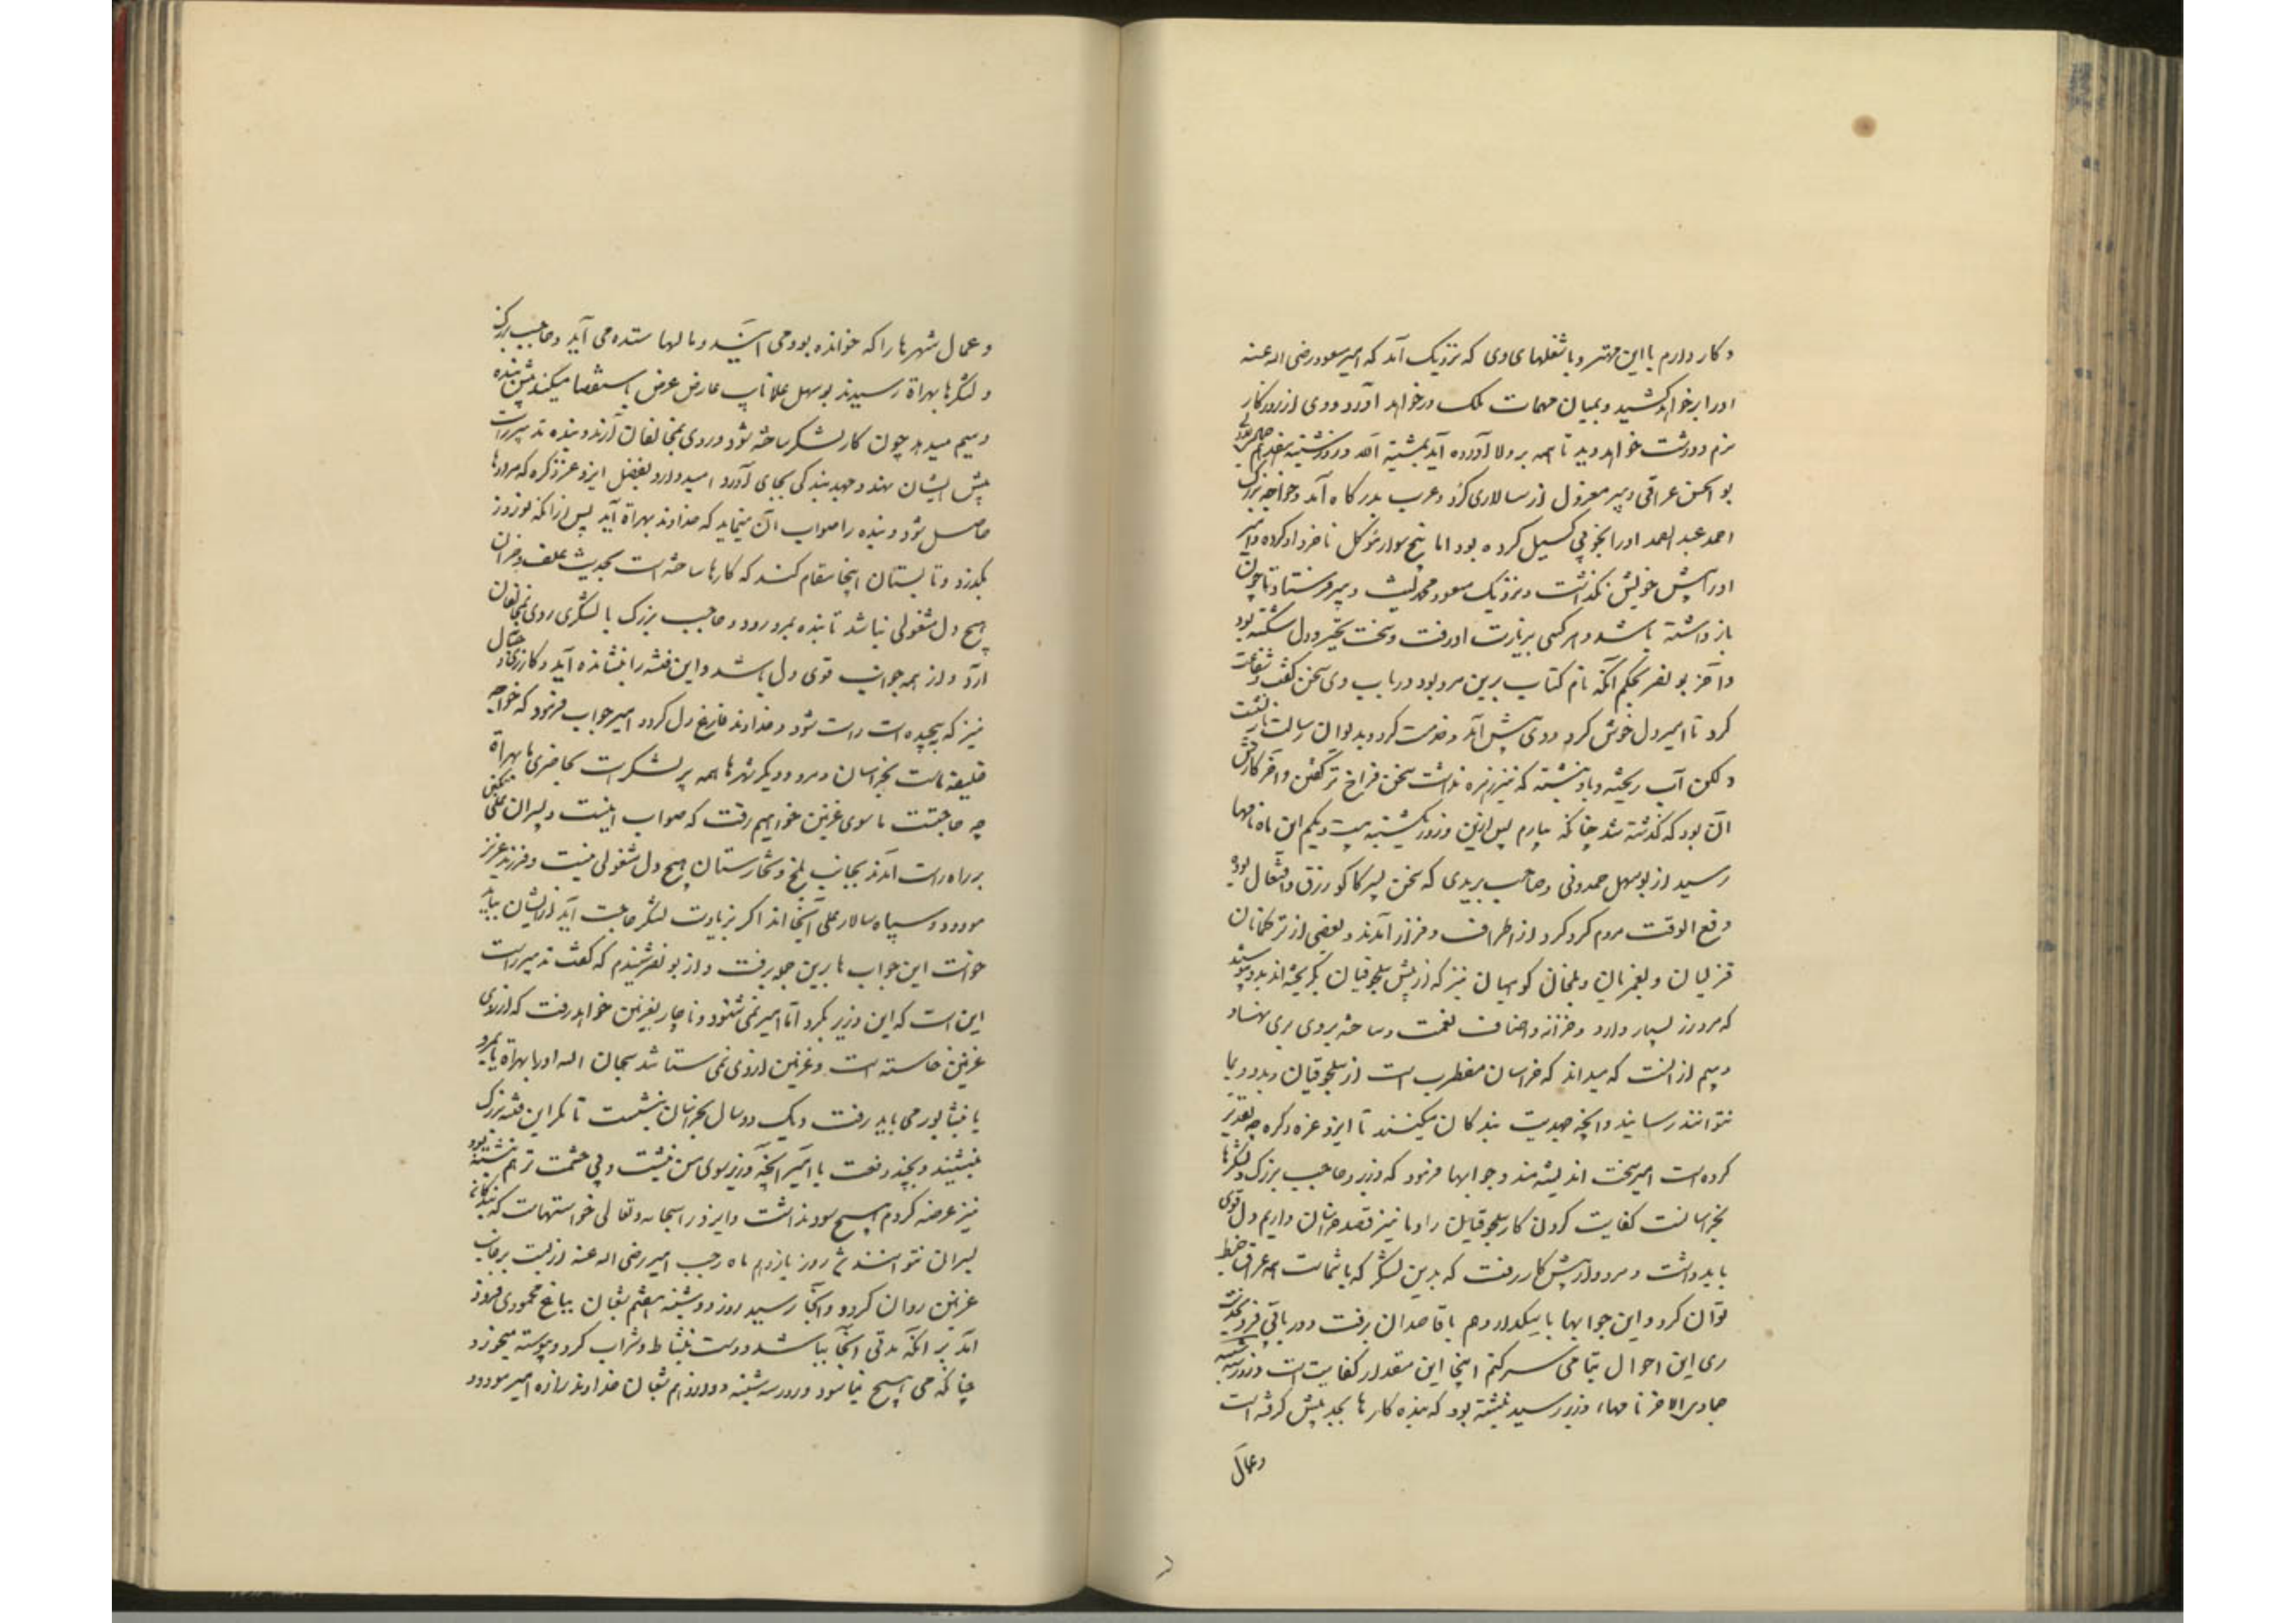 و کار دارم با این مهتر و با شغلهای وی که نزدیک آمد که امیر مسعود رضی الله عنه
او را برخواهد کشید و بمیان مهمات ملک درخواهد آورد و وی از روزگار
نرم و درشت خواهد دید تا همه بر ولا آورده آید بمشیة الله و روز شنبه هفدهم
بو الحسن عراقی دبیر معزول از سالاری کرد و عرب بدرگاه آمد و خواجه بزرگ
احمد عبد الصمد او را بخوبی گسیل کرده بود اما پنج سوار موکل نامزد او کرده و امیر
او را پیش خویش نگذاشت و نزدیک مسعود محمد لیث دبیر فرستاد تا چون
باز داشته باشد و هر کسی بزیارت او رفت و سخت متحیر و دل شکسته بود
و آخر بو نصر بحکم آنکه نام کتابت برین مرد بود در باب وی سخن گفت و شفاعت
کرد تا امیر دل خوش کرد و وی پیش آمد و خدمت کرد و بدیوان رسالت باز نشست
و لکن آب ریخته و باد نشسته که نیز زهره نداشت سخن فراخ تر گفتن و آخر کارش
آن بود که گذشته شد چنانکه بیارم پس ازین و روز یکشنبه بیست و یکم این ماه نامها
رسید از بوسهل حمدونی و صاحب بریدی که سخن پسر کاکو زرق و افتعال بود
دفع الوقت مردم گرد کرد از اطراف و فراز آمدند و بعضی از ترکمانان
قزلیان و یغمریان و بلخان کوهیان نیز که از پیش سلجوقیان بگریخته اند بدو پیوستند
که مرد زر بسیار دارد و خزانه و اصناف نعمت و ساخته بروی بری نهاد
و بیم از آنست که میداند که خراسان مضطرب است از سلجوقیان و مدد و بما
نتوانند رسانید و آنچه جهدیست بندگان میکنند تا ایزد عزه ذکره چه تقدیر
کرده است امیر سخت اندیشمند و جوابها فرمود که وزیر و حاجب بزرگ و لشکرها
بخراسانست کفایت کردن کار سلجوقیان را و ما نیز قصد خراسان داریم دل قوی
باید داشت و مردوار پیش کار رفت که بدین لشکر که با شماست همه عراق ضبط
توان کرد و این جوابها با اسکدار و هم با قاصدان برفت و در باقی
ری این احوال بتمامی سر کنم اینجا این مقدار کفایت است و روز سه شنبه
جمادی الاخر نامهاء وزیر رسید نبشته بود که بنده کارها بجد پیش گرفته است
وعمال
و عمال شهرها را که خوانده بود می آیند و مالها ستده می آید و حاجب بزرگ
و لشکرها بهراة رسیدند بوسهل علا نایب عارض عرض باستقصا میکند پیش بنده
و سیم میدهد چون کار لشکر ساخته شود و روی بمخالفان آرند و بنده تدبیر راست
پیش ایشان نهد و جهد بندگی بجای آورد امید دارد بفضل ایزد عز ذکره که مرادها
حاصل شود و بنده را صواب آن مینماید که خداوند بهراة آید پس از آنکه نوروز
بگذرد و تابستان اینجا مقام کند که کارها ساخته است بحدیث علف و جز آن
هیچ دل مشغولی نباشد تا بنده بمرو رود و حاجب بزرگ با لشکری روی بمخالفان
آرد و از همه جوانب قوی دل باشد و این فتنه را بنشانده آید و کار ری و جبال
نیز که پیچیده است راست شود و خداوند فارغ دل گردد امیر جواب فرمود که خواجه
خلیفه ماست بخراسان و مرو و دیگر شهرها همه پر لشکرست بحاضری ما بهراة
چه حاجتست ما سوی غزنین خواهیم رفت که صواب اینست و پسران علی تکین
بر راه راست آمدند بجانب بلخ و تخارستان هیچ دل مشغولی نیست و فرزند عزیز
مودود و سپاه سالار علی آنجا اند اگر بزیادت لشکر حاجت آید از ایشان بباید
خواست این جواب ها برین جمله برفت و از بو نصر شنیدم که گفت تدبیر راست
این است که این وزیر بکرد اما امیر نمی شنود و ناچار بغزنین خواهد رفت که آرزوی
غزنین خاسته است و غزنین از وی نمی ستاند سبحان الله او را بهراة یا بمرو
یا نشابور می باید رفت و یک دو سال بخراسان بنشست تا مگر این فتنه بزرگ
بنشیند و بچند دفعت با امیر آنچه وزیر سوی من نبشت و بی حشمت تر هم نبشته بود
نیز عرضه کردم هیچ سود نداشت و ایزد را سبحانه و تعالی خواستهاست که بندگان
بسر آن نتوانند شد روز یازدهم ماه رجب امیر رضی الله عنه از بست بر جانب
غزنین روان کرد و آنجا رسید روز دوشنبه هفتم شعبان بباغ محمودی فرود
آمد بر آنکه مدتی آنجا بباشد و دست بنشاط و شراب کرد و پیوسته میخورد
چنانکه می هیچ نیاسود و روز سه شنبه دوازدهم شعبان خداوند زاده امیر مودود